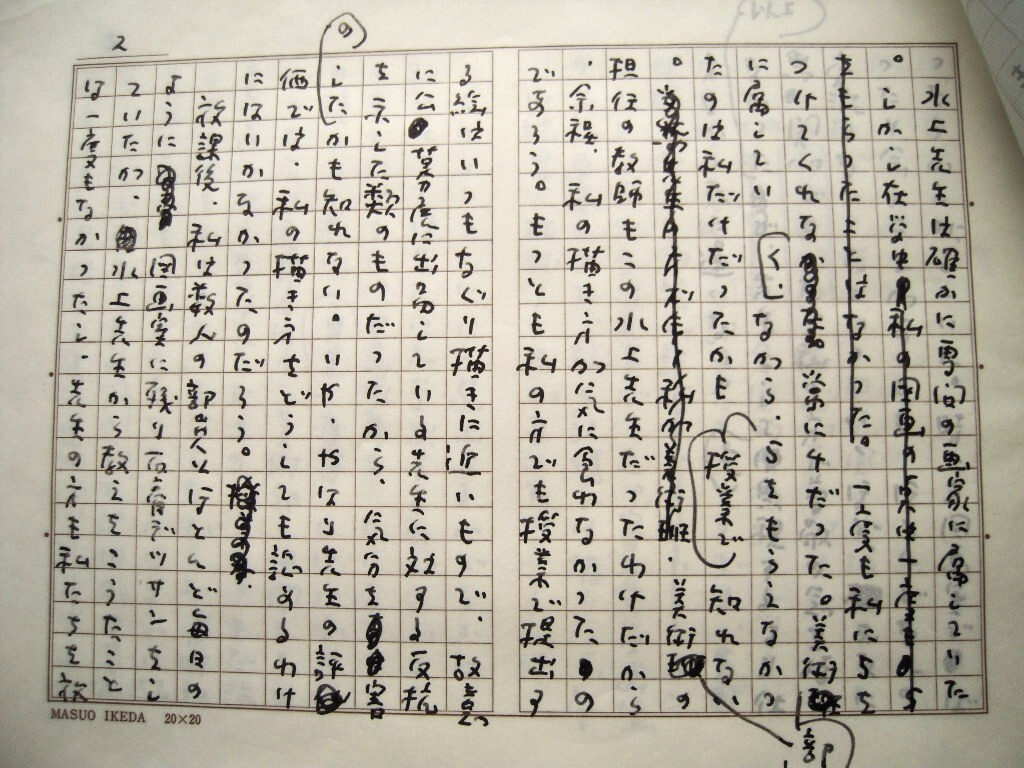 2
水上先生は確かに の画家に属していた
。しかし在学中私の図画の点は一度も5
をもらったことはなかった。一度も私に5を
つけてくれなかった。常に4だった。美術部
に属していながら、5をもらえなかっ
たのは私だけだったかも 授業で 知れない
。 美術部の
担任の教師もこの水上先生だったわけだから
、余程、私の描き方が気に食わなかったの
であろう。もっとも私の方でも授業で提出す
る絵はいつもなぐり描きに近いもので、故意
に公募展に出品して 先生に対する反抗
を示した類のものだったから、気分を害
したかも知れない。いや、やはり先生の評
価では、私の描き方をどうしても認めるわけ
にはいかなかったのだろう。
放課後、私は数人の部員とほとんど毎日の
ように図画室に残り石膏デッサンをし
ていたが、水上先生から教えをこうたこと
は一度もなかったし、先生の方も私たちを放
MASUO IKEDA 20×20